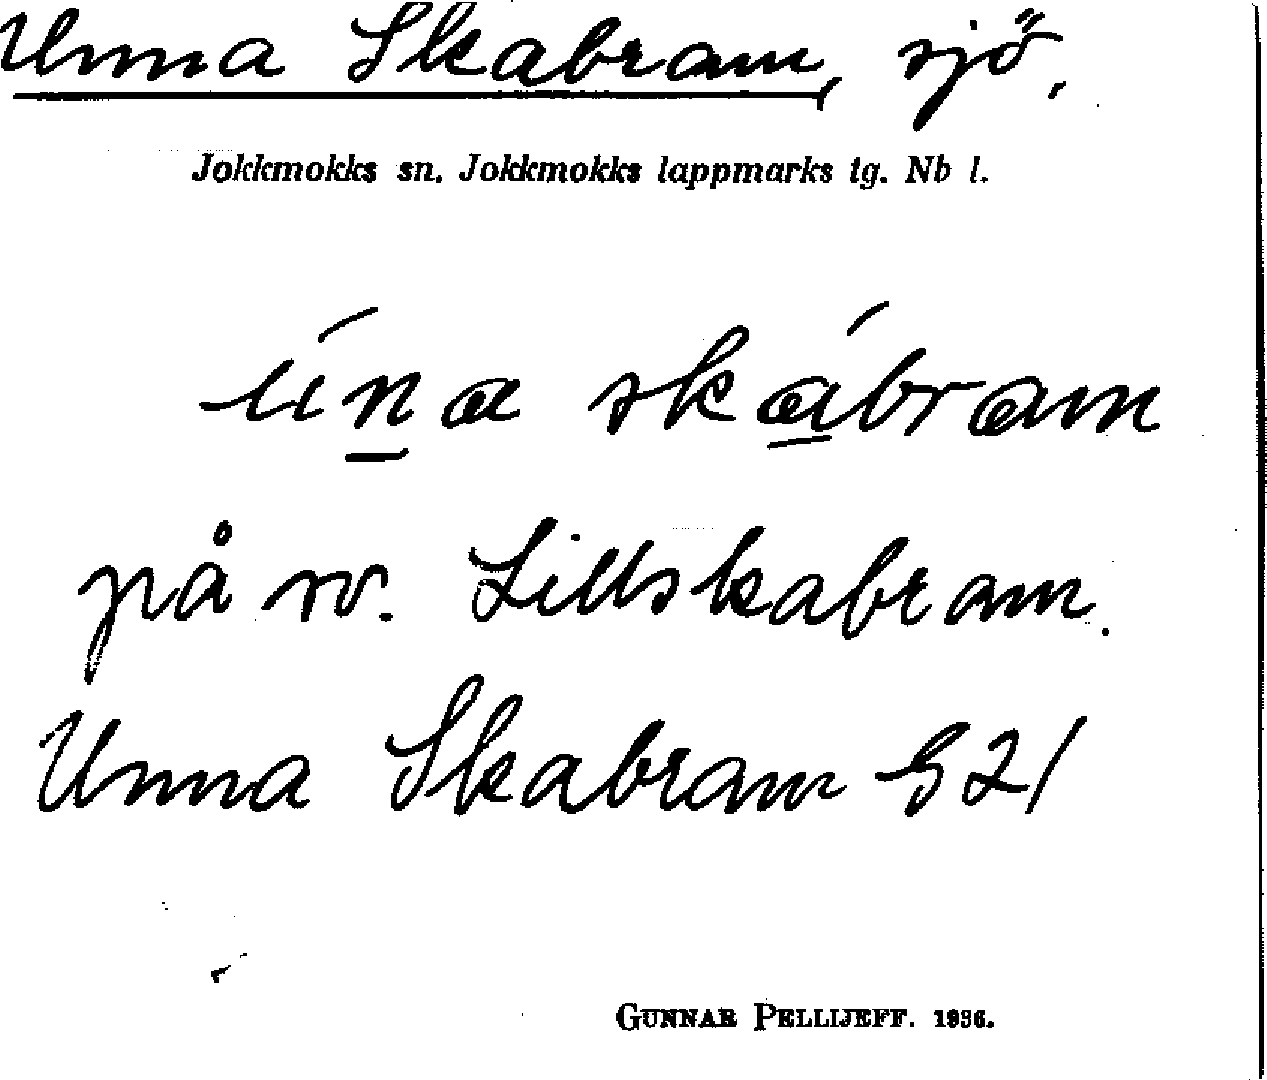 Unna Skabram, sjö,
Jokkmokks sn. Jokkmokks lappmarks tg. Nb l.
úna skábram
på sv. Lillskabram.
Unna Skabram G 21
GUNNAR PELLIJEFF. 1936.